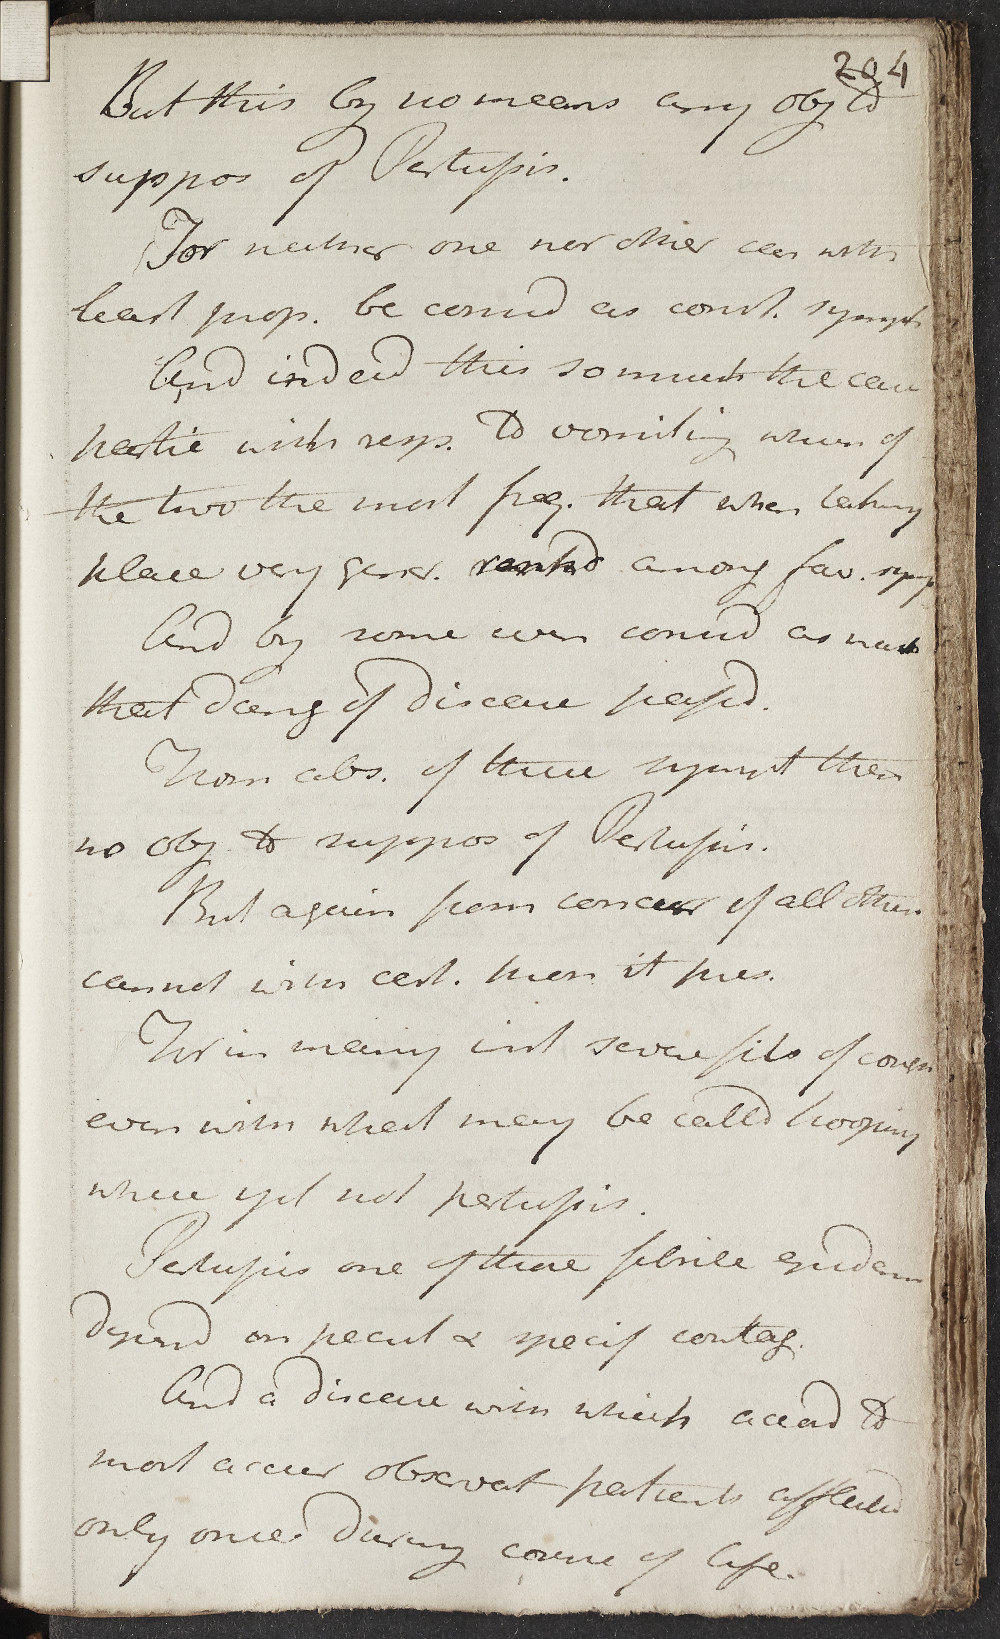 204
But this by no means any obj to
suppos of Pertussis.
For neither one nor other can with
least prop. be consid as const. sympt
And indeed this so much the case
partic with resp. to vomiting when of
the two the most freq. that when taking
place very gener. rankd among fav. symp
And by some even consid as mark
that dang of disease passd.
From abs. of these sympt then
no obj to suppos of Pertussis.
But again from concur of all others
cannot with cert. pron it pres.
For in many inst severe fits of cough
even with what may be calld hooping
where yet not pertussis.
Pertussis one of those febrile epidem
depend on pecul & specif contag.
And a disease with which accord to
most accur observat patients affected
only once during course of life.